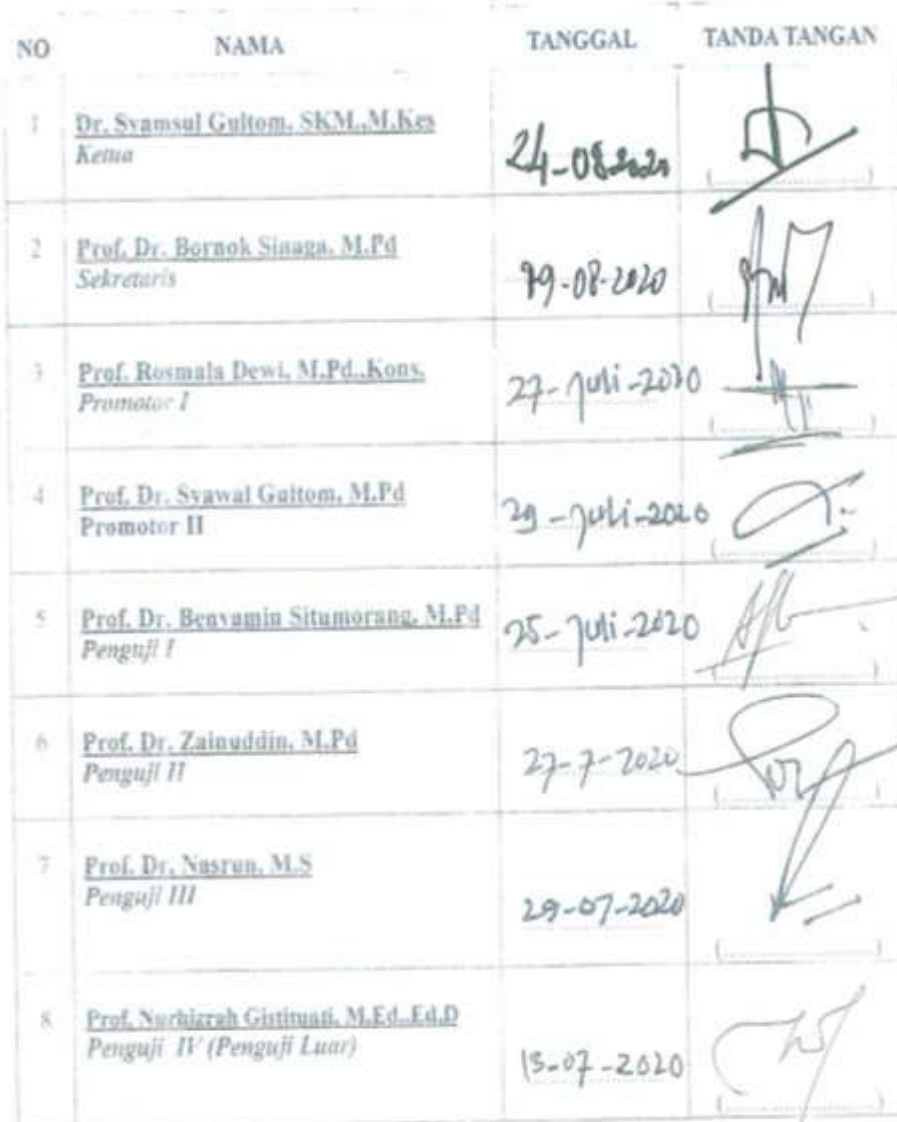 NO NAMA TANGGAL TANDA TANGAN
1 Dr. Syamsul Gultom, SKM.,M.Kes
Ketua
24-08-2020
2 Prof. Dr. Bornok Sinaga, M.Pd
Sekretaris
19-08-2020
3 Prof. Rosmala Dewi, M.Pd.,Kons.
Promotor I
27-Juli-2020
4 Prof. Dr. Syawal Gultom, M.Pd
Promotor II
29-Juli-2020
5 Prof. Dr. Benyamin Situmorang, M.Pd
Penguji I
25-Juli-2020
6 Prof. Dr. Zainuddin, M.Pd
Penguji II
27-7-2020
7 Prof. Dr. Nasrun, M.S
Penguji III
29-07-2020
8 Prof. Nurhizrah Gistituati, M.Ed.,Ed.D
Penguji IV (Penguji Luar)
13-07-2020